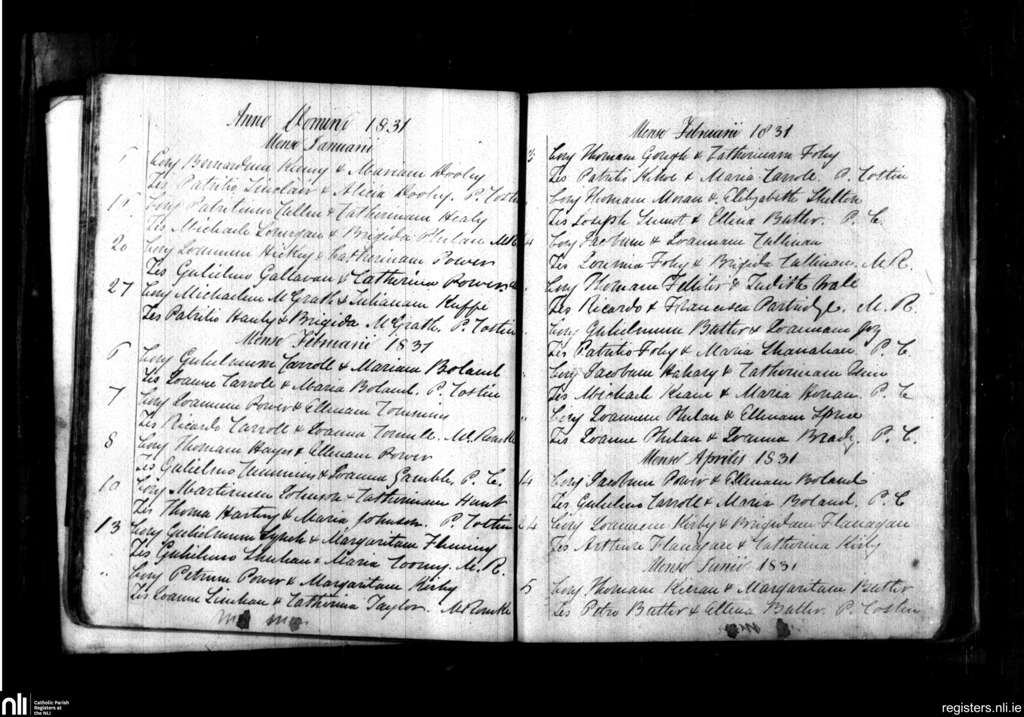 Anno Domini 1831
Mense Januarii
Conj Bernardum Kenny & Mariam Hooley
Tes Patritio Sinclair & Alicia Hooley. P. Costin
Conj Patritium Cullen & Catherinam Healy
Tes Michaele Lonergan & Brigida Phelan
20 Conj Joannem Hickey & Catherinam Power
Tes Gulielmo Gallavan & Catherina Power
27 Conj Michaelem McGrath & Julianam Kuffe
Tes Patritio Hanly & Brigida McGrath. P. Costin
Mense Februarii 1831
6 Conj Gulielmum Carroll & Mariam Boland
Tes Joanne Carroll & Maria Boland. P. Costin
7 Conj Joannem Power & Ellenam
Tes Ricardo Carroll & Joanna
8 Conj Thomam Hayes & Ellenam Power
Tes Gulielmo & Joanna Gamble. P. C.
10 Conj Martinum Johnson & Catherinam Hunt
Tes Thoma Hartny & Maria Johnson. P. Costin
13 Conj Gulielmum Lynch & Margaritam Fleming
Tes Gulielmo & Maria Toomy. M. R.
" Conj Petrum Power & Margaritam Kirby
Tes Joanne Linehan & Catherina Taylor.
Mense Februarii 1831
3 Conj Thomam Gough & Catherinam Foley
Tes Patritio Kehoe & Maria Carroll. P. Costin
Conj Thomam Moran & Elizabeth Shelton
Tes Joseph & Ellena Butler. P. C.
4 Conj Jacobum & Joannam Cullinan
Tes Jeremia Foley & Brigida Cullinan. M. R.
Conj Thomam & Judith
Tes Ricardo & Francisca Partridge. M. R.
Conj Gulielmum Butler & Joannam Joy
Tes Patritio Foley & Maria Shanahan. P. C.
Conj Jacobum & Catherinam
Tes Michael Keane & Maria Honan. P. C
Conj Joannem Phelan & Ellenam
Tes Joanne Phelan & Joanna Brady. P. C.
Mense Aprilis 1831
14 Conj Jacobum Power & Ellenam Boland
Tes Gulielmo Carroll & Maria Boland. P. C
24 Conj Joannem Kirby & Brigidam Flanagan
Tes Arthuro Flanagan & Catherina Kirby
Mense Junii 1831
5 Conj Thomam Kieran & Margaritam Butler
Tes Petro Butler & Ellena Butler. P. Costin
nli Catholic Parish Registers at the NLI
registers.nli.ie